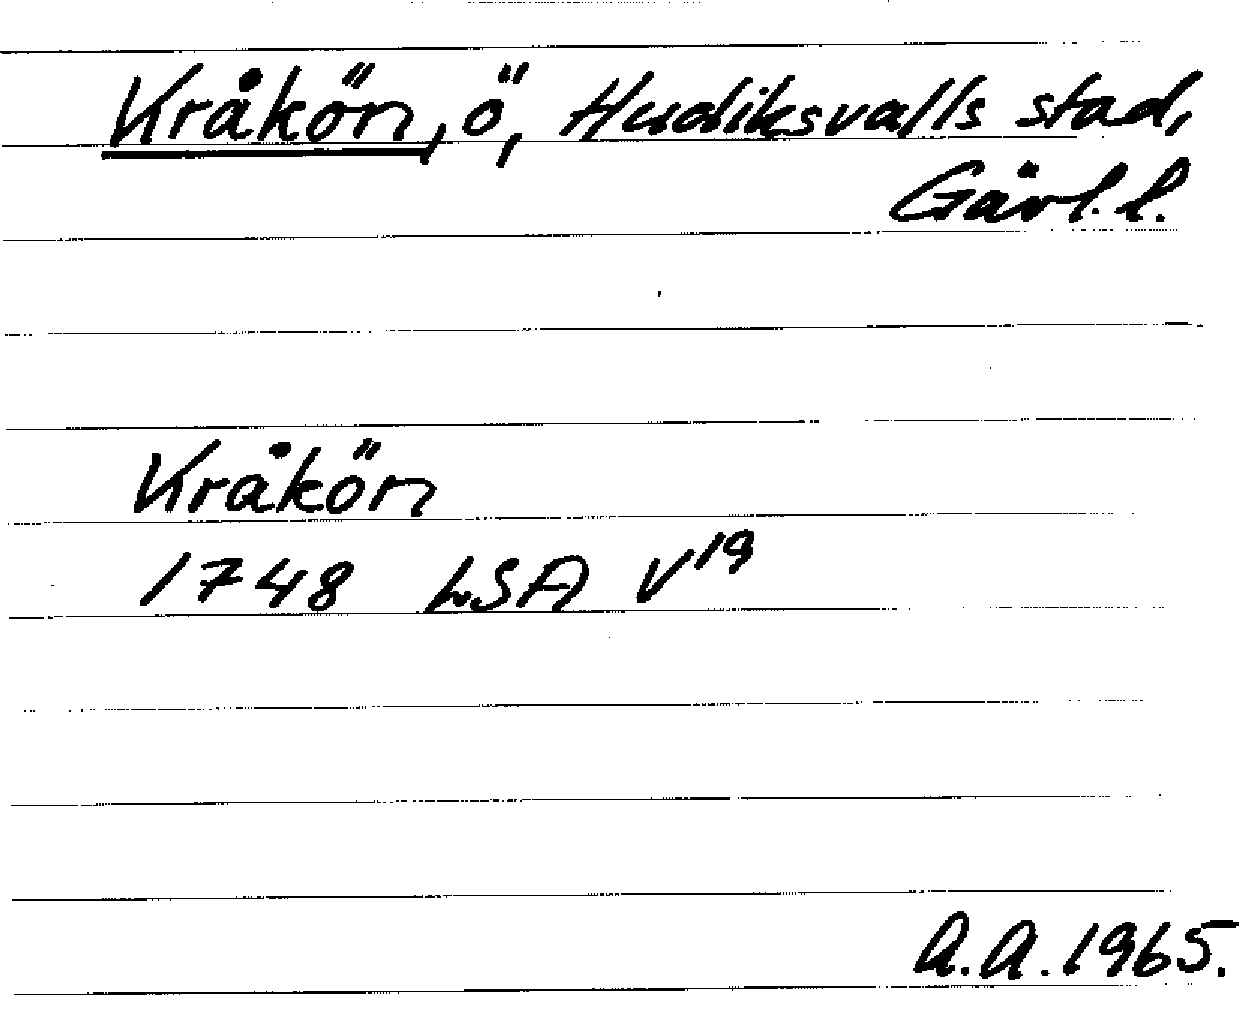 Kråkön, ö, Hudiksvalls stad,
Gävl. l.
Kråkön
1748 LSA V¹⁹
A.A. 1965.